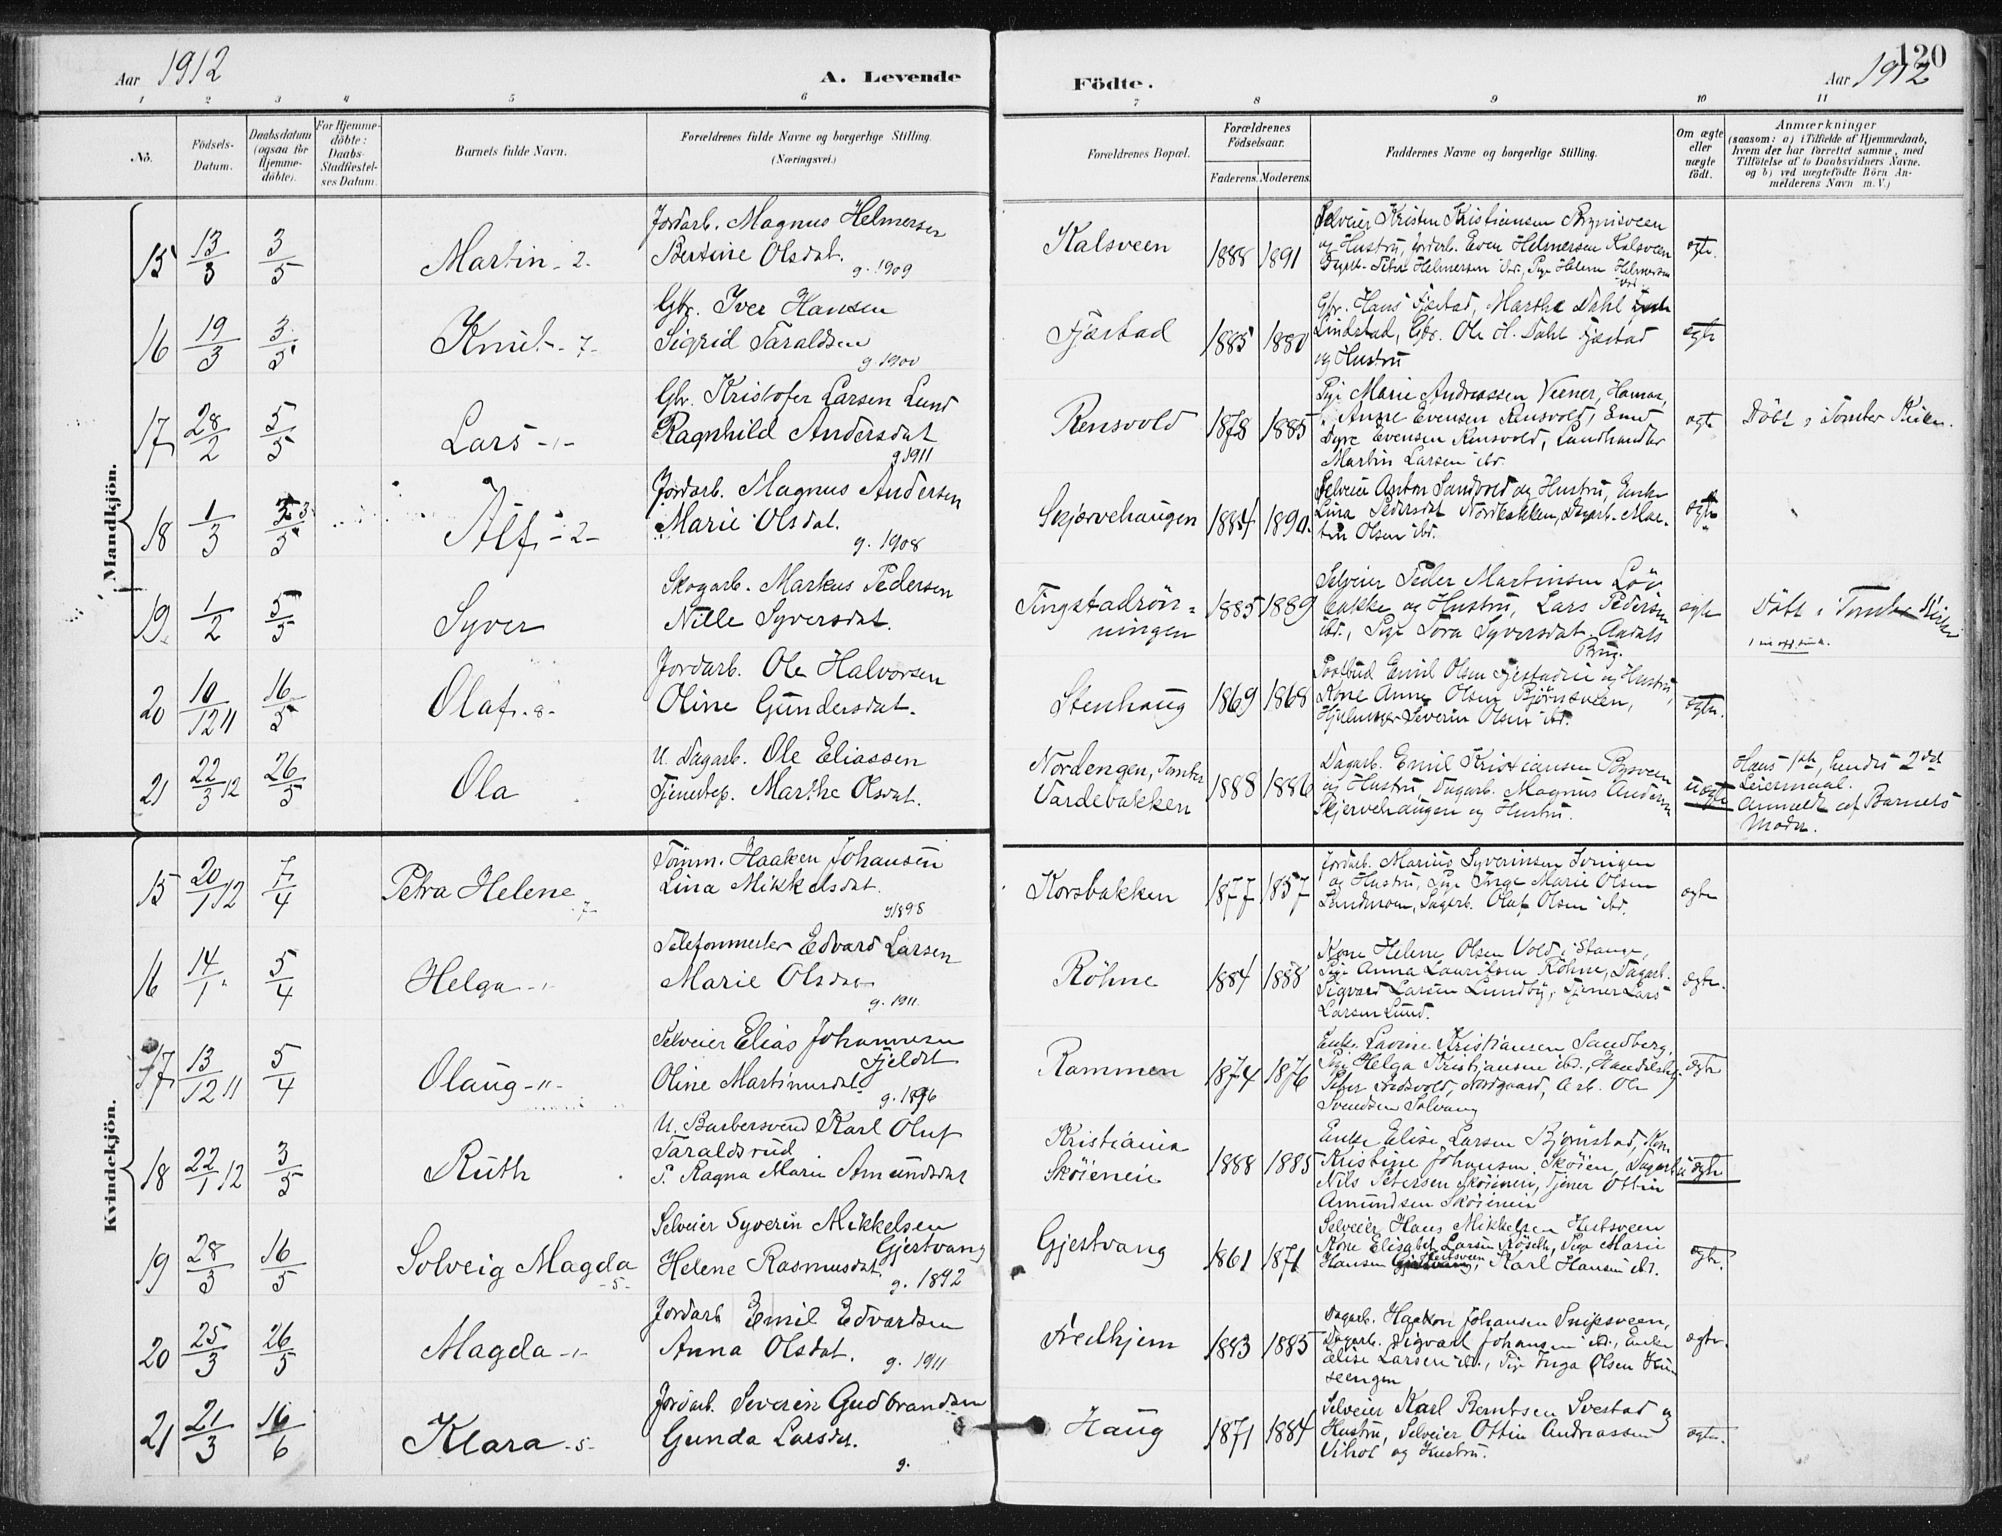 Aar 1912
A. Levende
Födte.
120
Aar 1912
1 2 3 4 5 6 7 8 9 10 11
No.
Födsels-Datum.
Daabsdatum (ogsaa for Hjemme-döbte).
For Hjemme-döbte: Daabs-Stadfæstel-ses Datum.
Barnets fulde Navn.
Forældrenes fulde Navne og borgerlige Stilling.
(Næringsvei.)
Forældrenes Bopæl.
Forældrenes Födselsaar.
Faderens. Moderens.
Faddernes Navne og borgerlige Stilling.
Om ægte eller uægte födt.
Anmærkninger
(saasom: a) i Tilfælde af Hjemmedaab,
hvem der har forrettet samme, med
Tilföielse af to Daabsvidners Navne.
og b) ved uægtefödte Börn An-
melderens Navn m. V.)
Mandkjön.
15 13/3 3/5 Martin - 2 - Jordarb. Magnus Helmersen
Bertine Olsdat. g. 1909
Kalsveen 1888 1891
og Hustru, Jordarb. Even Helmersen Kalsveen
ægte.
16 19/3 3/5 Knut - 7 - Gbr. Iver Hansen
Sigrid Taraldsen g. 1900
Fjæstad 1885 1880
Gbr. Hans Fjæstad, Marthe Dahl
Lindstad, Gbr. Ole H. Dahl Fjæstad
og Hustru
ægte
17 28/2 5/5 Lars - 1 - Gbr. Kristofer Larsen Lund
Ragnhild Andersdat g. 1911
Rensvold 1878 1885
Pige Marie Andreassen Viener, Hamar,
Anne Evensen Rensvold,
Evensen Rensvold, Landhandler
Martin Larsen ibd.
ægte Döbt i Tomter Kirke.
18 1/3 5 Alf - 2 - Jordarb. Magnus Andersen
Marie Olsdat. g. 1908
Skjervehaugen 1884 1890
Selveier Anton Sandvold og Hustru, Enke
Lina Pedersdat Nordbakken, Dagarb. Mar-
tin Olsen ibd.
ægte
19. 1/2 5/5 Syver Skogarb. Markus Pedersen
Nille Syversdat.
Tingstadrön-
ningen 1885 1889
Selveier Peder Martinsen Löv
bakke og Hustru, Lars Pedersen
ibd., Pige Tora Syversdat. Aadals
Brug.
ægte Döbt i Tomter Kirke
20 10/12 11 16/5 Olaf - 8 - Jordarb. Ole Halvorsen
Oline Gundersdat.
Stenhaug 1869 1868
Postbud Emil Olsen og Hustru,
Kone Anne Olsen Björnsveen,
Severin Olsen ibd.
ægte.
21 22/3 12 26/5 Ola U. Dagarb. Ole Eliassen
Tjenestep. Marthe Olsdat.
Nordengen, Tomter
Vardebakken 1888 1886
Dagarb. Emil Kristiansen
og Hustru, Dagarb. Magnus Andersen
Skjervehaugen og Hustru.
uægte
Hans 1ste, hendes 2det
Leiermaal.
Anmeldt af Barnets
Moder.
Kvindekjön.
15 20/1 12 7/4 Petra Helene - 7 - Tömm. Haaken Johansen
Lina Mikkelsdat. g. 1898
Korsbakken 1877 1857
Jordarb. Marius Syverinsen
og Hustru, Pige Inge Marie Olsen
Lundmoen, Dagarb. Olaf Olsen ibd.
ægte
16 14/1 " 5/4 Helga - 1 Telefonmester Edvard Larsen
Marie Olsdat g. 1911.
Röhne 1884 1888
Kone Helene Olsen Vold, Stange,
Pige Anna Lauritsen Röhne, Dagarb.
Sigvard Larsen Lundby, Tjener Lars
Larsen Lund.
ægte.
17 13/12 11 5/4 Olaug - 11 - Selveier Elias Johannesen
Fjeldet
Oline Martinusdat. g. 1896
Rammen 1874 1876
Enke Lavine Kristiansen Sandberg,
Pige Helga Kristiansen ibd., Handelsbg.
Peter, Nordgaard, Arb. Ole
Svendsen Solvang
ægte
18 22/1 12 3/5 Ruth U. Barbersvend Karl Oluf
Taraldsrud
P. Ragna Marie Amundsdat
Kristiania
Sköienen 1888 1885
Enke Elise Larsen Björnstad,
Kristine Johansen Sköien, Dagarb.
Nils Petersen Sköienen, Tjener Ottin
Amundsen Sköienen
uægte
19 28/3 16/5 Solveig Magda - 5 - Selveier Syverin Mikkelsen
Gjestvang
Helene Rasmusdat. g. 1892
Gjestvang 1861 1871
Selveier Hans Mikkelsen Hutsveen
Kone Elisabet Larsen, Pige Marie
Hansen Hutsveen, Karl Hansen ibd.
ægte.
20 25/3 26/5 Magda - 1 - Jordarb Emil Edvardsen
Anna Olsdat. g. 1911
Fredhjem 1883 1885
Dagarb. Haakon Johansen Snipsveen,
Dagarb. Sigvart Johansen ibd., Enke
Elise Larsen ibd., Pige Inga Olsen
seengen
ægte.
21 21/3 16/6 Klara - 5 - Jordarb. Severin Gudbrandsen
Gunda Larsdat. g.
Haug 1871 1884
Selveier Karl Berntsen Svestad og
Hustru, Selveier Ottin Andreassen
Vihol og Hustru.
ægte.